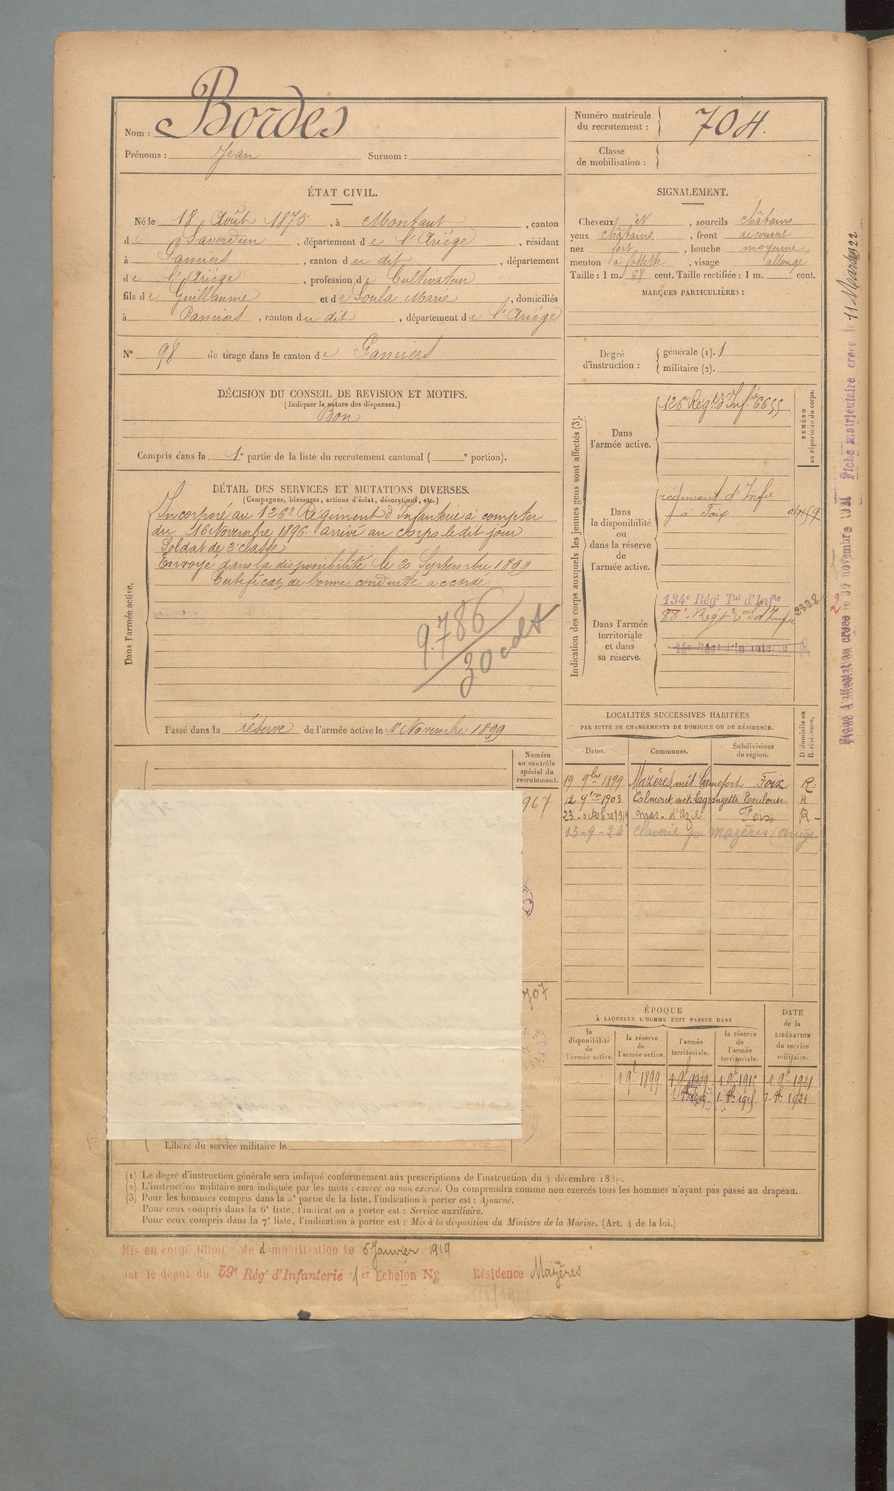 Nom : Bordes
Prénoms : Jean Surnom :
Numéro matricule du recrutement : 704.
Classe de mobilisation :
ÉTAT CIVIL.
Né le 18 Août 1875, à Montaut, canton
de Saverdun, département de l'Ariège, résidant
à Pamiers, canton du dit, département
de l'Ariège, profession de Cultivateur
fils de Guillaume et de Soula Marie, domiciliés
à Pamiers, canton du dit, département de l'Ariège
N° 98 de tirage dans le canton de Pamiers
SIGNALEMENT.
Cheveux et, sourcils châtains
yeux châtains, front découvert
nez fort, bouche moyenne
menton à fossette, visage allongé
Taille : 1 m. 68 cent. Taille rectifiée : 1 m. cent.
MARQUES PARTICULIÈRES :
Degré d'instruction : générale (1). 1
militaire (2).
DÉCISION DU CONSEIL DE REVISION ET MOTIFS.
(Indiquer la nature des dispenses.)
Bon
Compris dans la 1e partie de la liste du recrutement cantonal ( e portion).
DÉTAIL DES SERVICES ET MUTATIONS DIVERSES.
(Campagnes, blessures, actions d'éclat, décorations, etc.)
Dans l'armée active.
Incorporé au 126e Régiment d'Infanterie à compter
du 16 Novembre 1896 arrivé au corps le dit jour
Soldat de 2e classe
Envoyé dans la disponibilité le 20 Septembre 1899
Certificat de bonne conduite accordé
9.786
Passé dans la réserve de l'armée active le 1er Novembre 1899
Indication des corps auxquels les jeunes gens sont affectés (3).
NUMÉRO au répertoire du corps.
Dans l'armée active.
126e Régt d'Infie 6655
Dans la disponibilité ou dans la réserve de l'armée active.
régiment d'Infie
à Foix
Dans l'armée territoriale et dans sa réserve.
134e Régt Tal d'Infie
Fiche matriculaire créée le 11 Mars 1922
LOCALITÉS SUCCESSIVES HABITÉES
PAR SUITE DE CHANGEMENTS DE DOMICILE OU DE RÉSIDENCE.
Dates. Communes. Subdivisions de région. D. domicile ou R. résidence.
19 9bre 1899 Mazères Foix R
1903 Calmont Toulouse R
23 octobre Mas-d'Azil Foix R
13-9-24 Mazères (Ariège
Numéro au contrôle spécial du recrutement.
967
ÉPOQUE
À LAQUELLE L'HOMME DOIT PASSER DANS
la disponibilité de l'armée active.
la réserve de l'armée active.
l'armée territoriale.
la réserve de l'armée territoriale.
DATE de la LIBÉRATION du service militaire.
1 9bre 1899
Libéré du service militaire le
(1) Le degré d'instruction générale sera indiqué conformément aux prescriptions de l'instruction du 4 décembre
(2) L'instruction militaire sera indiquée par les mots : exercé ou non exercé. On comprendra comme non exercés tous les hommes n'ayant pas passé au drapeau.
(3) Pour les hommes compris dans la 5e partie de la liste, l'indication à porter est : Ajourné.
Pour ceux compris dans la 6e liste, l'indication à porter est : Service auxiliaire.
Pour ceux compris dans la 7e liste, l'indication à porter est : Mis à la disposition du Ministre de la Marine. (Art. 4 de la loi.)
Mis en congé illimité de démobilisation le 6 Janvier 1919
par le dépôt du 59e Rég. d'Infanterie 1er Echelon N° Résidence Mazères